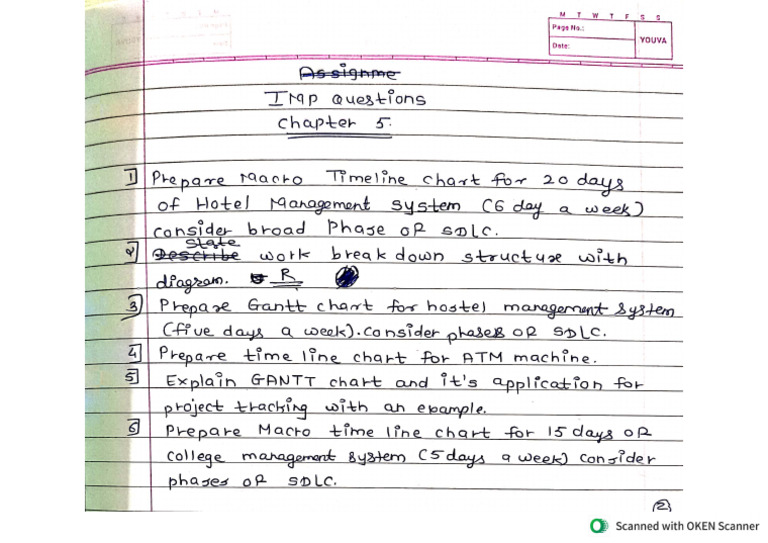 M T W T F S S
Page No.:
Date:
YOUVA
Assignme
IMP Questions
Chapter 5.
1] Prepare Macro Timeline chart for 20 days
of Hotel Management system (6 day a week)
consider broad Phase OR SDLC.
State
2] Describe work break down structure with
diagram. R
3] Prepare Gantt chart for hostel management system
(five days a week). consider phases OR SDLC.
4] Prepare time line chart for ATM machine.
5] Explain GANTT chart and it's application for
project tracking with an example.
6] Prepare Macro time line chart for 15 days OR
college management system (5 days a week) consider
phases OR SDLC.
2
Scanned with OKEN Scanner